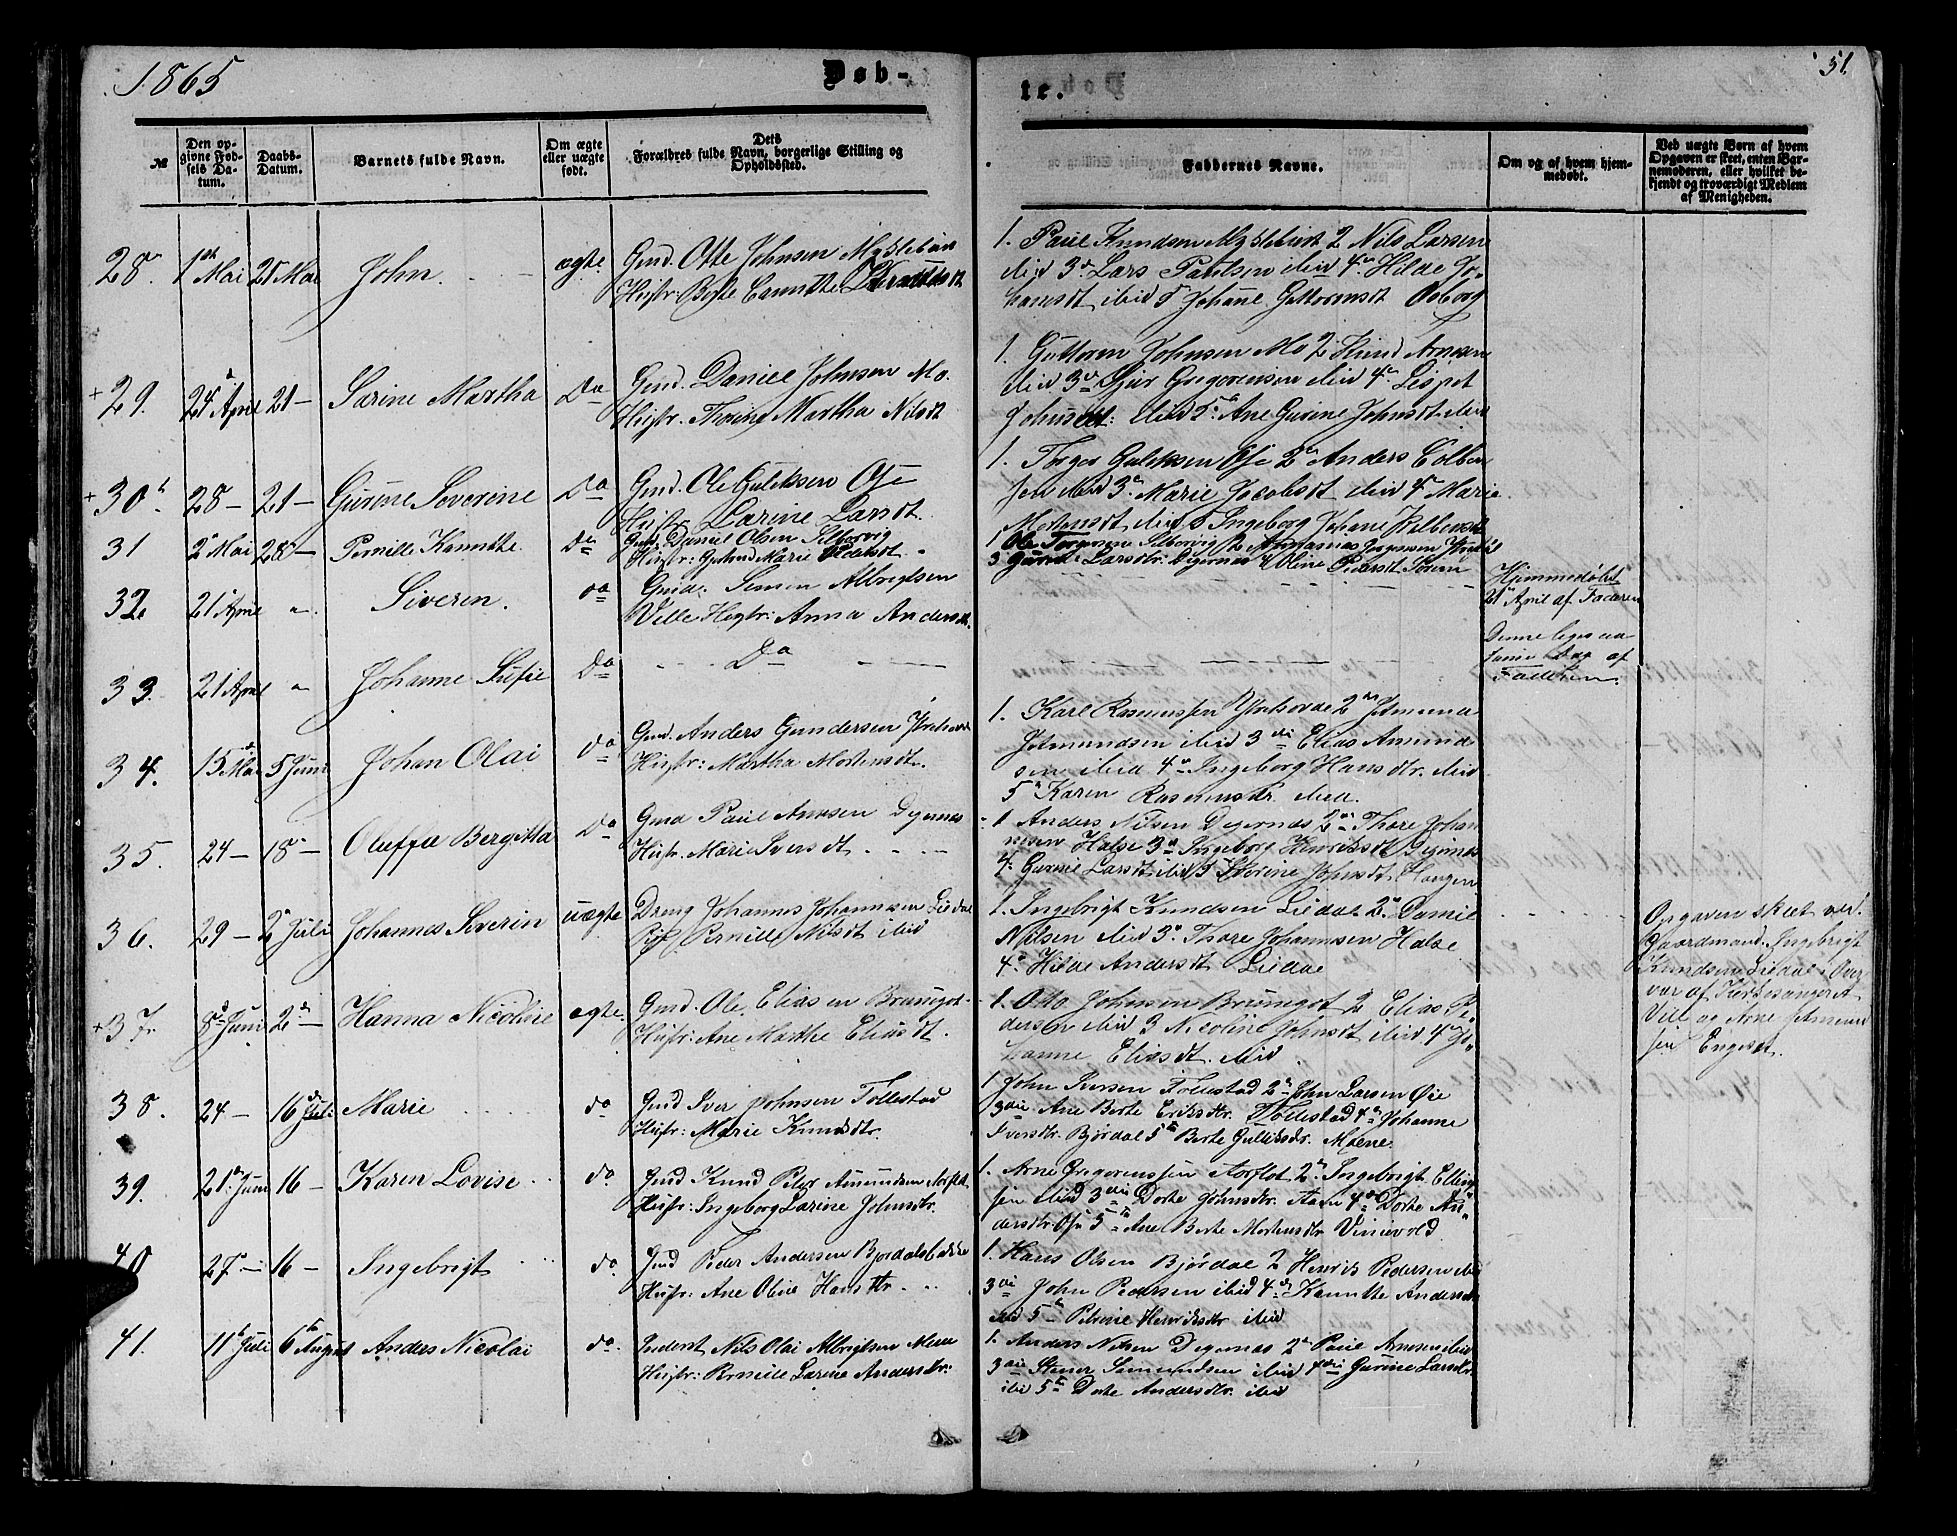 1865
Døb-
te.
51
№
Den op-
givne Fød-
sels Da-
tum.
Daabs-
Datum.
Barnets fulde Navn.
Om ægte
eller uægte
født.
Dets
Forældres fulde Navn, borgerlige Stilling og
Opholdssted.
Faddernes Navne.
Om og af hvem hjem-
medøbt.
Ved uægte Børn af hvem
Opgaven er skeet, enten Bar-
nemoderen, eller hvilket be-
kjendt og troværdigt Medlem
af Menigheden.
28. 1ste Mai 21 Mai John. ægte. Gmd. Otte Johnsen Myklebust
Hustr: Berte
1. Paul Knudsen Myklebust 2 Nils Larsen
ibid 3. Lars Paulsen ibid 4 Hilde Jo-
hansdt ibid 5 Johane Guttormsdt Aaborg
+29. 24 April 21 - Sarine Martha Do Gmd. Daniel Johnsen Mo.
Hustr. Thorine Martha Nilsdt
1. Guttorm Johnsen Mo 2 Knud Arnesen
ibid 3 Sjur Gregorensen ibid 4 Lispet
ibid 5. Ane Gurine Johnsdt ibid
+30 28 - 21 - Gurine Severine Do Gmd. Ole Guleksen Ose
Hustr Larine Larsdt.
1. Torger Guleksen Ose 2 Anders Colben
sen ibid 3. Marie Jacobsdt ibid 4 Marie
Mortensdt ibid 5 Ingeborg Johane
31 2 Mai 28 - Pernille Kanutte Do Gmd. Daniel Olsen Silbervig
Hustr: Gjertrud Marie Pedersdt
1 Ole Torgersen Silbervig 2
3 Gurine Larsdtr: Digernes 4 Oline Pedersdt
32. 21 April " Siverin. do Gmd: Simen Albrigtsen
Ville Hustr: Anna Andersdt.
Hjemmedøbt
21 April af Faderen
33. 21 April " Johanne Sofie Do Do
Denne ligesaa
samme Dag af
Faderen.
34. 15 Mai 5 Juni Johan Olai do Gmd. Anders Gundersen
Hustr: Martha Mortensdt.
1. Karl Rasmussen 2 Jetmund
Jetmundsen ibid 3die Elias Amund
sen ibid 4 Ingeborg Hansdtr. ibid
5 Karen Rasmusdtr. ibid.
35. 24 - 18 - Oluffa Bergitta Do Gmd Paul Arnesen Digernes
Hustr. Marie Iversdt.
1 Anders Nilsen Digernes 2 Thore Johan
nesen Halse 3 Ingeborg Henriksdt Digernes
4. Gurine Larsdt ibid 5 Severine Johnsdt Haugen
36. 29 - 2 Juli Johannes Severin uægte Dreng Johannes Johannesen Liedal
Pige Pernille Nilsdt ibid
1. Ingebrigt Knudsen Liedal 2. Daniel
Nilsen ibid 3. Thore Johannesen Halse
4. Hilde Andersdt Liedal
Opgaven skeet ved
Gaardmand Ingebrigt
Knudsen Liedal. Over
var af Kirkesanger A
Ville og Arne Amund
sen Engeset.
+37. 8 Juni 2 - Hanna Nicoline ægte. Gmd. Ole Eliasen Brungot.
Hustr: Ane Marthe Eliasdt.
1. Otto Johnsen Brungot 2 Elias Pe-
dersen ibid 3 Nicoline Johnsdt ibid 4 Jo-
hanne Eliasdt. ibid.
38. 24 - 16 Juli Marie do Gmd Iver Johnsen Follestad
Hustr: Marie Knudsdtr.
1 John Iversen Follestad 2 John Larsen Øie
3die Ane Berte Eriksdtr. Follestad 4 Johanne
Iversdtr. Bjørdal 5te Berte Gulliksdr. Moene.
39. 21 Juni 16 - Karen Lovise do. Gmd Knud Peter Amundsen Aarflot
Hustr: Ingeborg Larine Johnsdtr.
1. Arne Gregorenssen Aarflot 2 Ingebrigt Elling
sen ibid 3die Dorte Johnsdtr. Aam 4 Dorte An-
dersdtr. Ose 5 Ane Berte Mortensdtr Vinievold
40 27 - 16 - Ingebrigt do. Gmd Peder Andersen Bjørdalsbakke
Hustr: Ane Oline Hansdtr.
1. Hans Olsen Bjørdal 2 Henrik Pedersen ibid
3die John Pedersen ibid 4 Kanutte Andersdtr
ibid 5te Petrine Henriksdtr ibid
41. 11 Juli 6te August Anders Nicolai do. Inderst Nils Olai Albrigtsen
Hustr: Pernille Larine Andersdtr:
1. Anders Nilsen Digernes 2 Paul Arnesen ibid
3die Stener Samundsen ibid 4 Gurine Larsdtr
ibid 5te Dorte Andersdtr. ibid